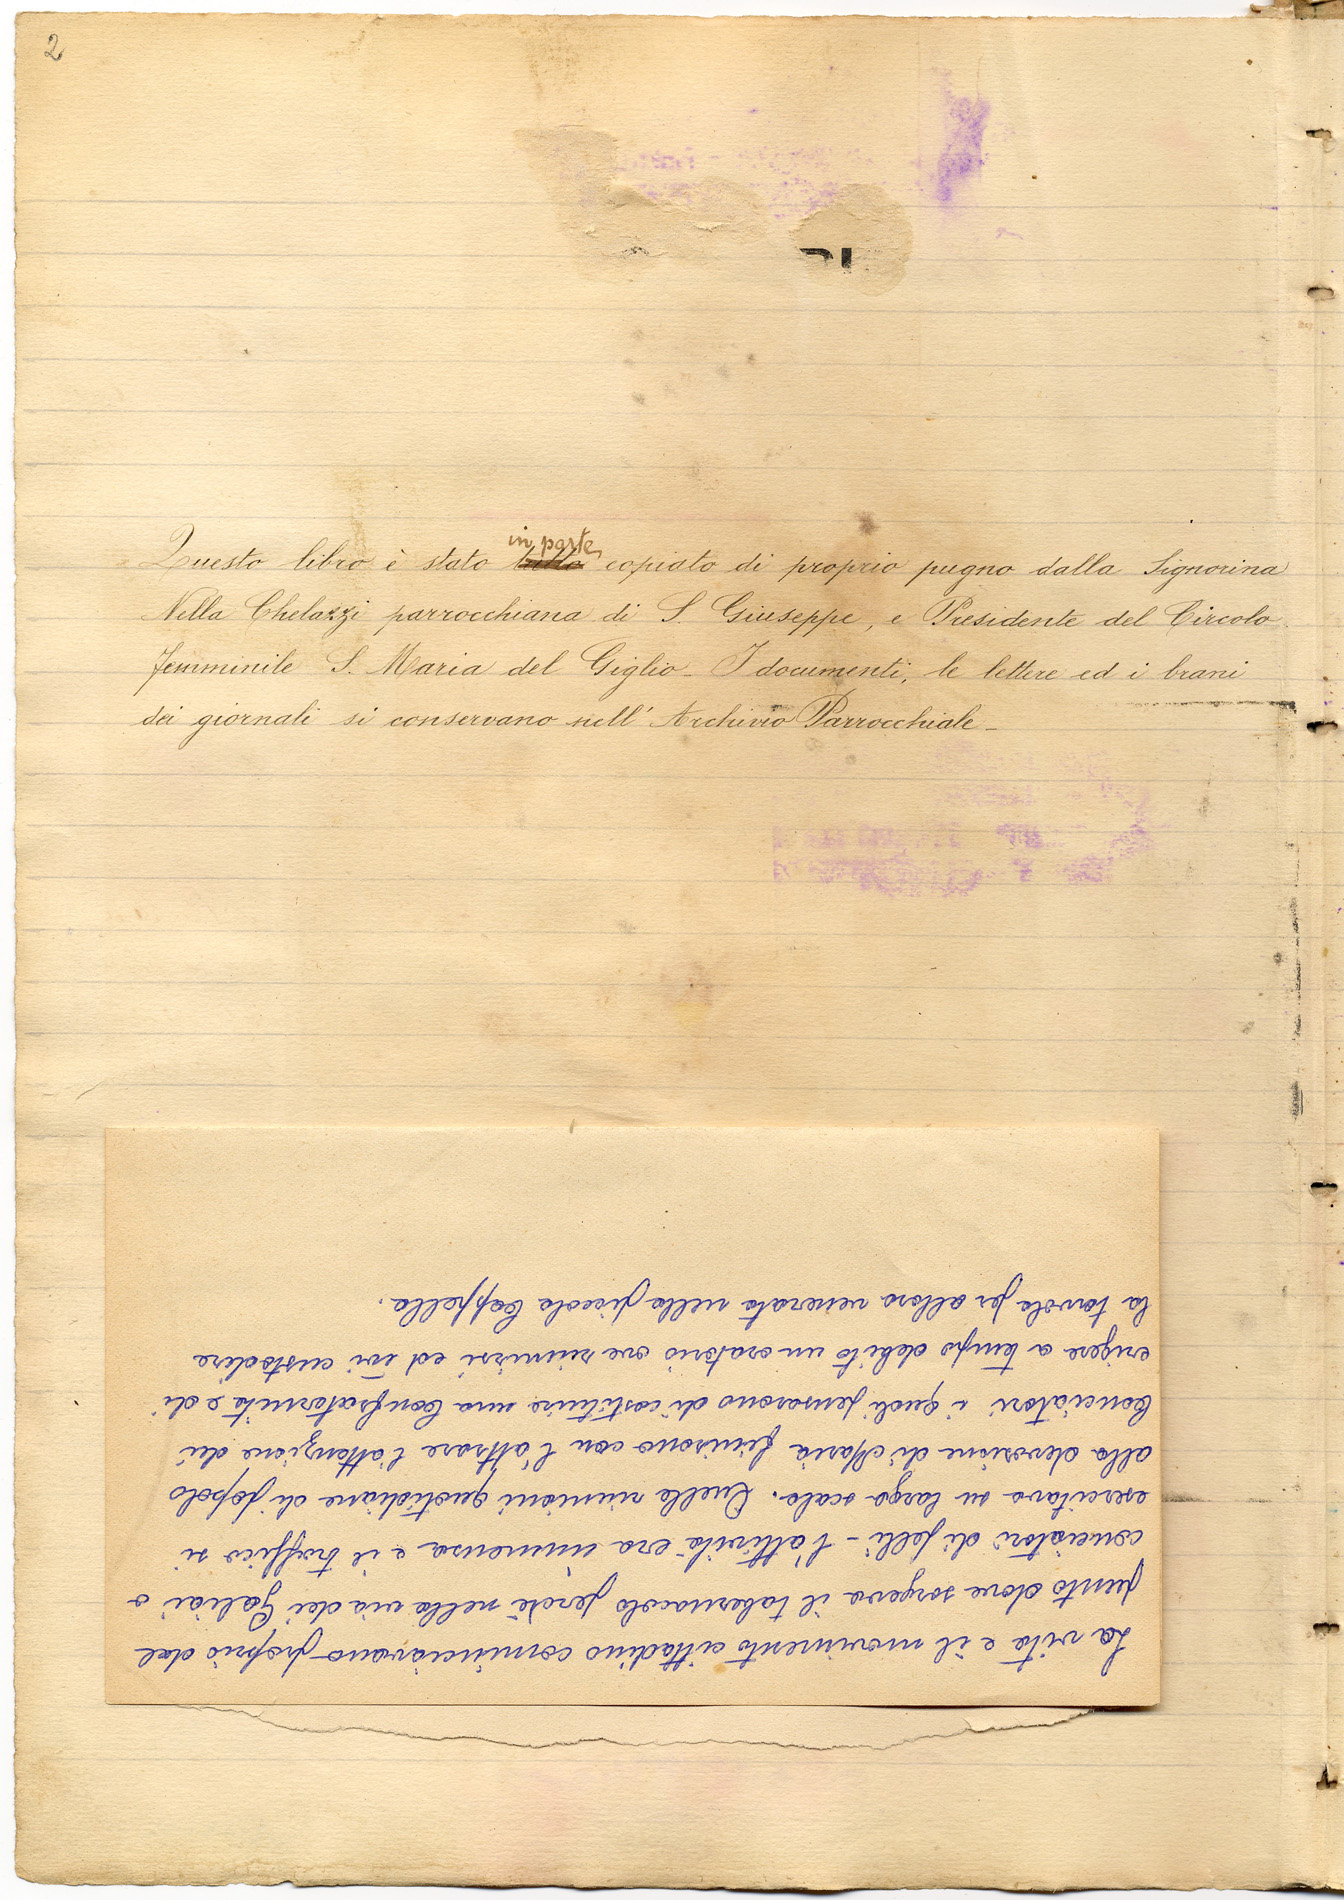 2
Questo libro è stato tutto in parte copiato di proprio pugno dalla Signorina
Nella Chelazzi parrocchiana di S. Giuseppe, e Presidente del Circolo
femminile S. Maria del Giglio - I documenti, le lettere ed i brani
dei giornali si conservano nell'Archivio Parrocchiale -
La vita e il movimento cittadino cominciavano proprio dal
punto dove sorgeva il tabernacolo perchè nella via dei Galigai o
conciatori di pelli - l'attività era immensa e il traffico si
esercitava su larga scala. Quelle riunioni quotidiane di popolo
alla devozione di Maria finirono con l'attrare l'attenzione dei
Conciatori i quali pensarono di costituire una Confraternita e di
erigere a tempo debito un oratorio ove riunirsi ed ivi custodire
la tavola fin allora venerata nella piccola Cappella.